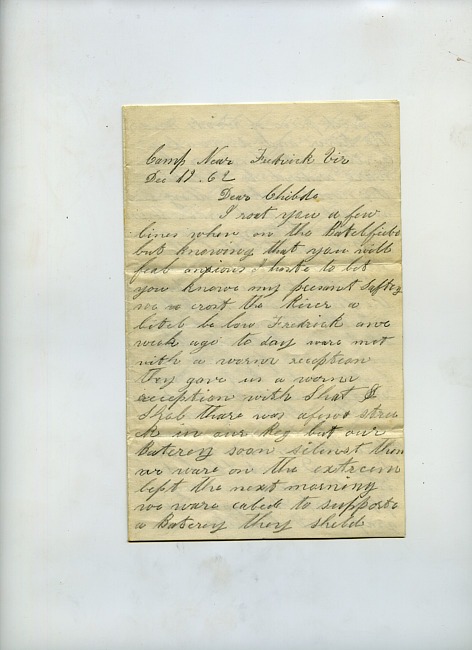 Camp Near Fredrick Vir
Dec 19. 62
Dear Childs
I rout you a few
lines when on the Batelfield
but knowing that you will
feal anxious I haste to let
you knowe my present Saftey
we crost the River a
litel be low Fredrick one
weak ago to day ware met
with a worme reception
they gave us a worme
reception with Shot &
Shal thare was a few stru
ck in our Reg but our
Baterey soon silenst them
we ware on the extreem
left the next morning
we ware caled to supporte
a Baterey they sheld